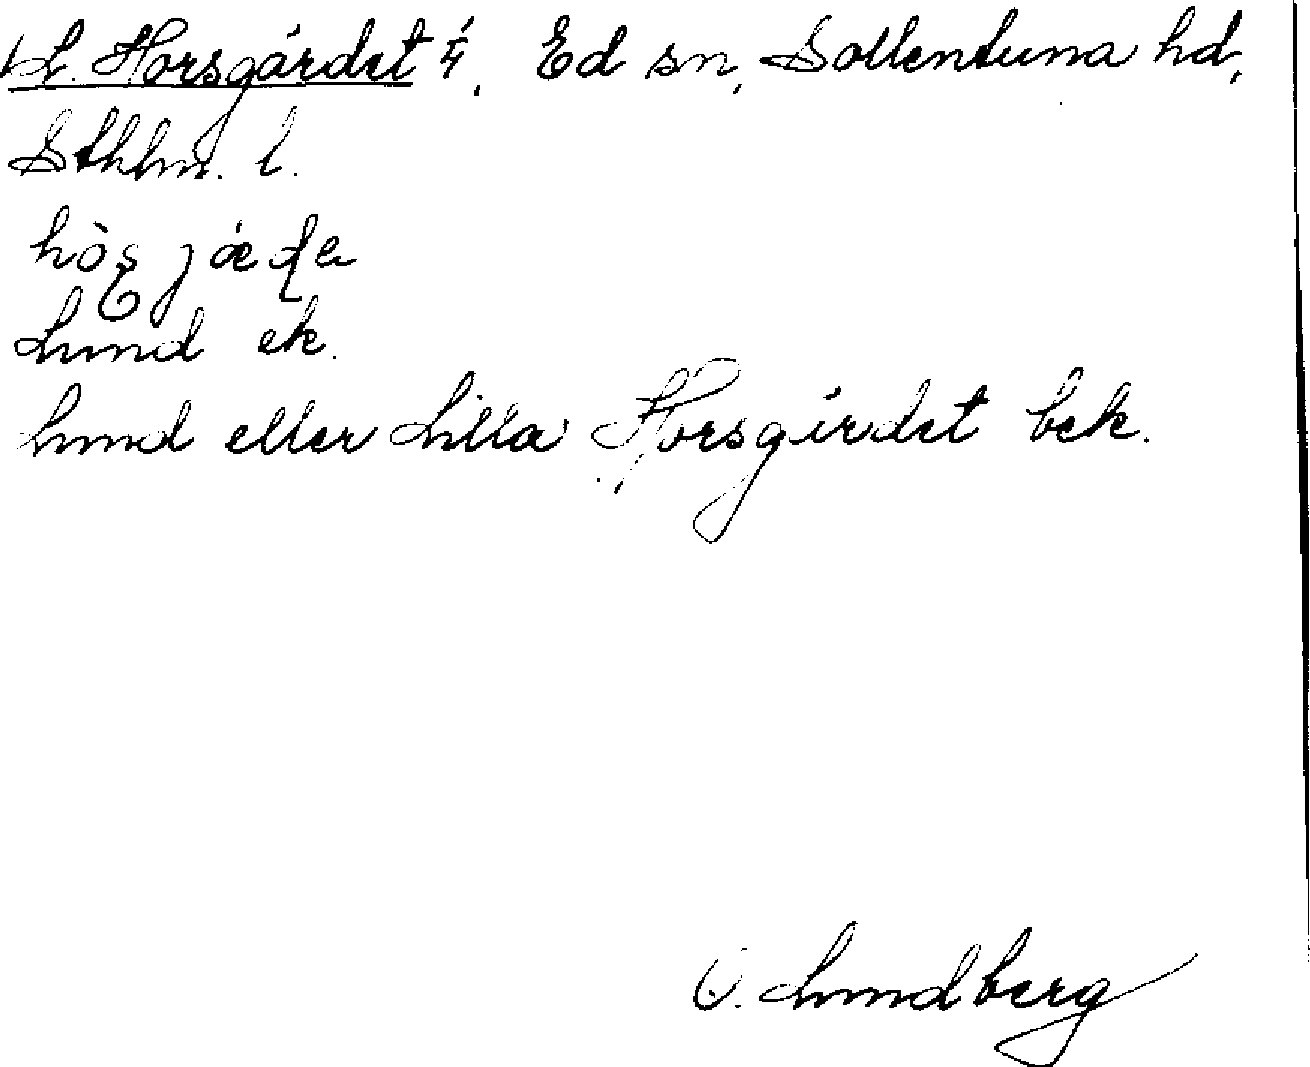 L. Horsgärdet 4, Ed sn, Sollentuna hd,
Sthlm. l.
Lund ek.
Lund eller Lilla Horsgärdet bek.
O. Lundberg